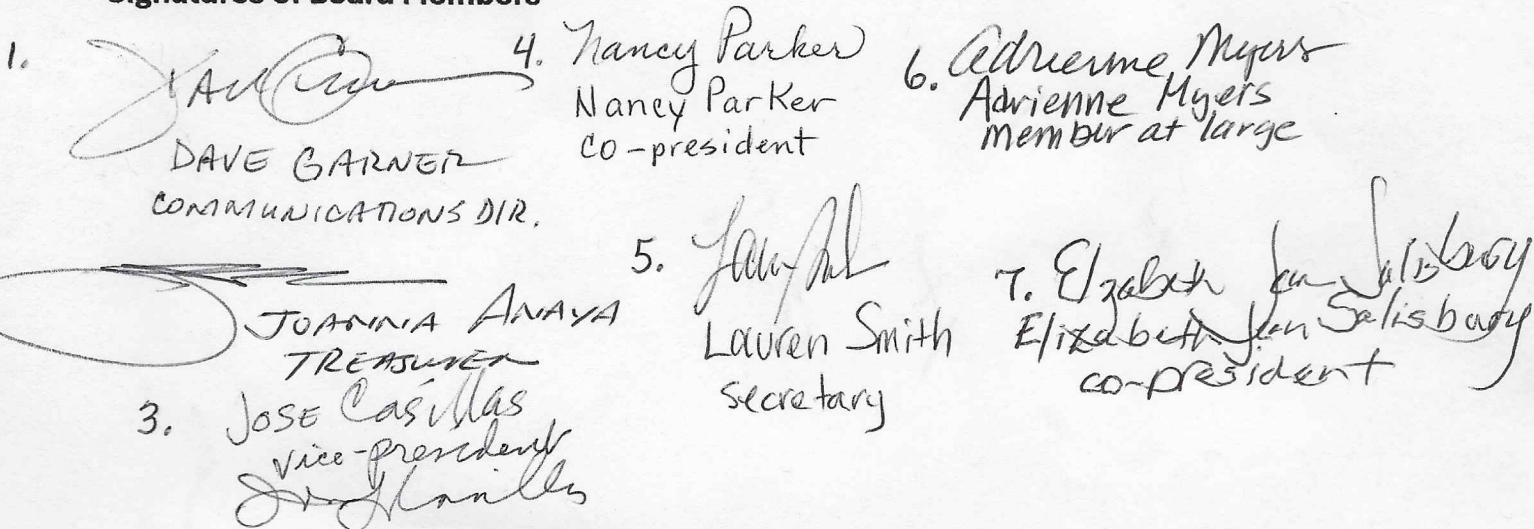 Signatures of Board Members
1.
DAVE GARNER
COMMUNICATIONS DIR.
JOANNA ANAYA
TREASURER
3. JOSE Casillas
vice-president
4. Nancy Parker
Nancy Parker
co-president
5.
Lauren Smith
secretary
6. Adrienne Myers
Adrienne Myers
member at large
7. Elizabeth Jean Salisbury
Elizabeth Jean Salisbury
co-president